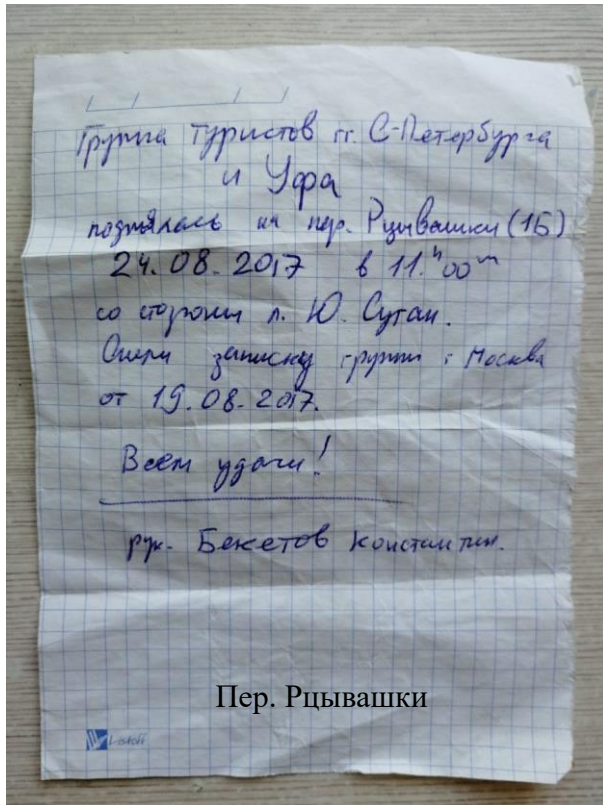 Группа туристов гг. С-Петербурга
и Уфа
поднялась на пер. Рцывашки (1Б)
24.08.2017 в 11.ч00м
со стороны л. Ю. Суган.
записку группы г Москва
от 19.08.2017.
Всем удачи!
рук. Бекетов Константин.
Пер. Рцывашки
Listoff